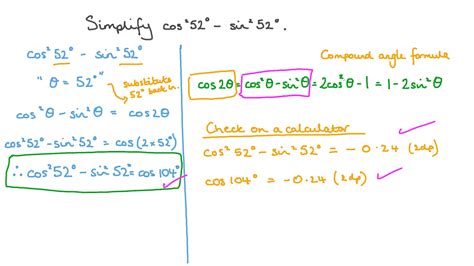 Simplify cos²52° − sin²52°.
cos²52° − sin²52°
" θ = 52° "
substitute
52° back in.
cos²θ − sin²θ = cos2θ
cos²52° − sin²52° = cos(2×52°)
∴ cos²52° − sin²52° = cos104°
Compound angle formula
cos2θ = cos²θ − sin²θ = 2cos²θ − 1 = 1 − 2sin²θ
Check on a calculator
cos²52° − sin²52° = −0.24 (2dp)
cos104° = −0.24 (2dp)